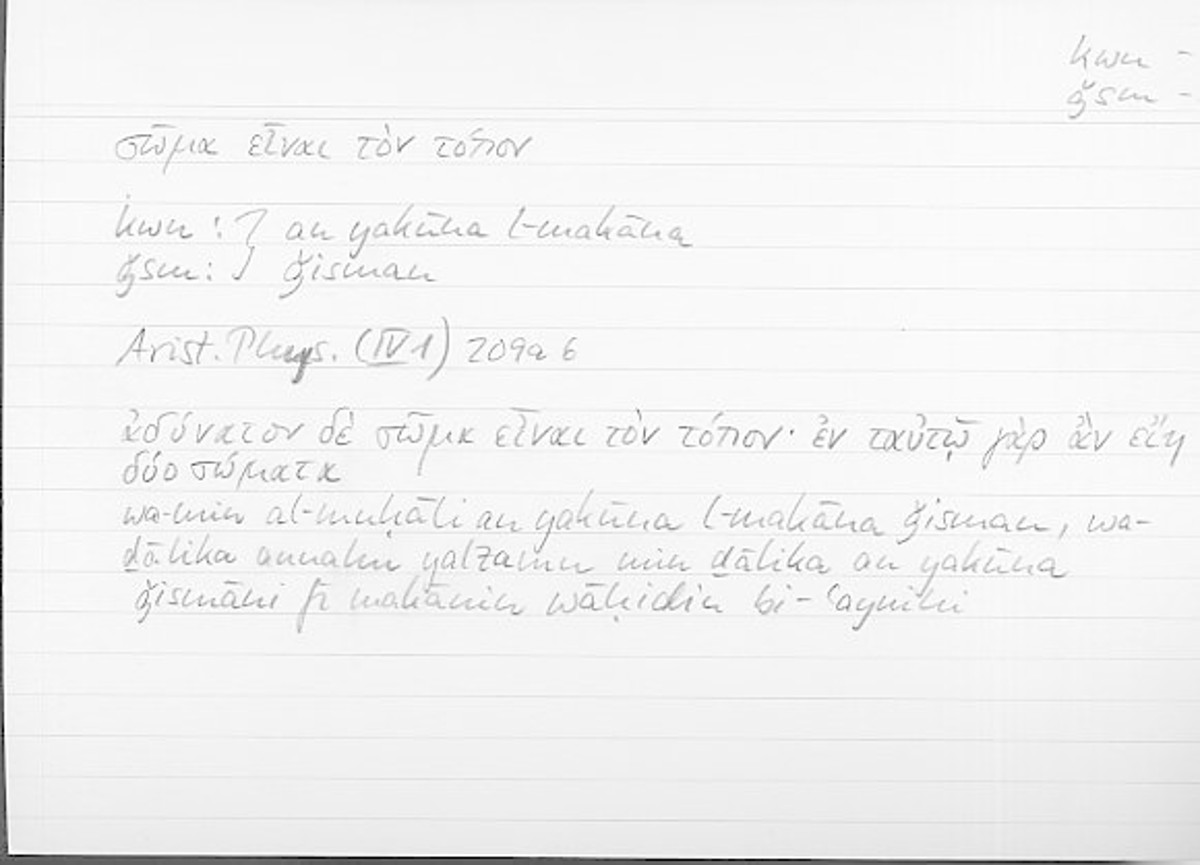 kwn -
ǧsm -
σῶμα εἶναι τὸν τόπον
kwn : } an yakūna l-makāna
ǧsm : } ǧisman
Arist. Phys. (IV 1) 209a 6
ἀδύνατον δὲ σῶμα εἶναι τὸν τόπον· ἐν ταὐτῷ γὰρ ἂν εἴη
δύο σώματα
wa-min al-muḥāli an yakūna l-makāna ǧisman, wa-
ḏālika annahū yalzamu min ḏālika an yakūna
ǧismāni fī makānin wāḥidin bi-ʿaynihi